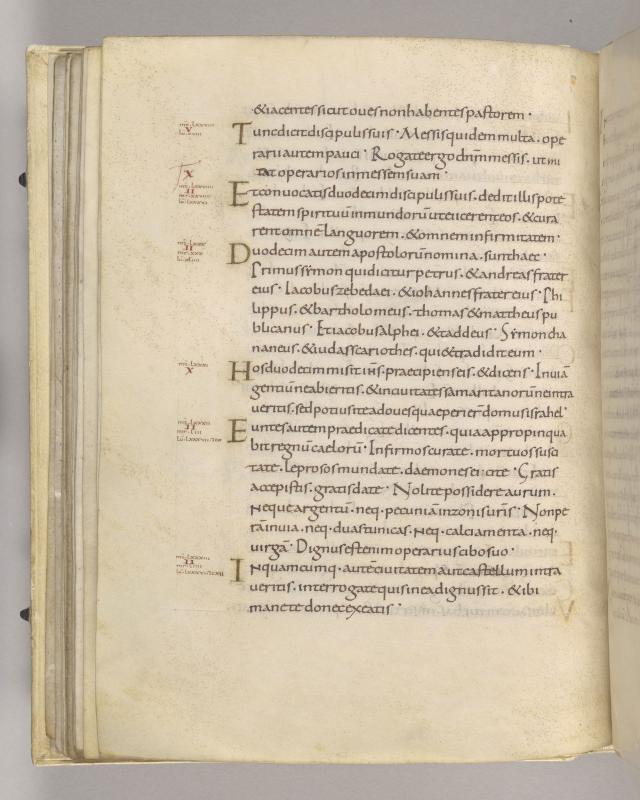 &iacentes sicut oues non habentes pastorem ·
V
Tunc dicit discipulis suis · Messis quidem multa . ope
rarii autem pauci · Rogate ergo dñm messis . ut mi
X
tat operarios in messem suam ·
II
Et conuocatis duodecim discipulis suis . dedit illis pote
statem spirituū inmundorū ut eicerent eos . & cura
rent omnē languorem . & omnem infirmitatem ·
II
Duodecim autem apostolorū nomina . sunt haec ·
Primus symon qui dicitur petrus . & andreas frater
eius · Iacobus zebedaei . & iohannes frater eius · Phi
lippus . & bartholomeus . thomas & mattheus pu
blicanus · Et iacobus alphei . & taddeus · Symon cha
naneus . & iudas scariothes . qui & tradidit eum ·
X
Hos duodecim misit ihs . praecipiens eis . & dicens · In uiā
gentiū ne abieritis . & in ciuitates samaritanorū ne intra
ueritis . sed potius ite ad oues quae perier̄ domus israhel ·
II
Euntes autem praedicate dicentes . quia appropinqua
bit regnū caelorū · Infirmos curate . mortuos susci
tate . leprosos mundate . daemones eicite · Gratis
accepistis . gratis date · Nolite possidere aurum .
neque argentū . neq· pecuniā in zonis ur̄is · Non pe
rā in uia . neq· duas tunicas . neq· calciamenta . neq·
uirgā · Dignus est enim operarius cibo suo ·
II
In quamcumq· autē ciuitatem aut castellum intra
ueritis . interrogate quis in ea dignus sit . & ibi
manete donec exeatis ·